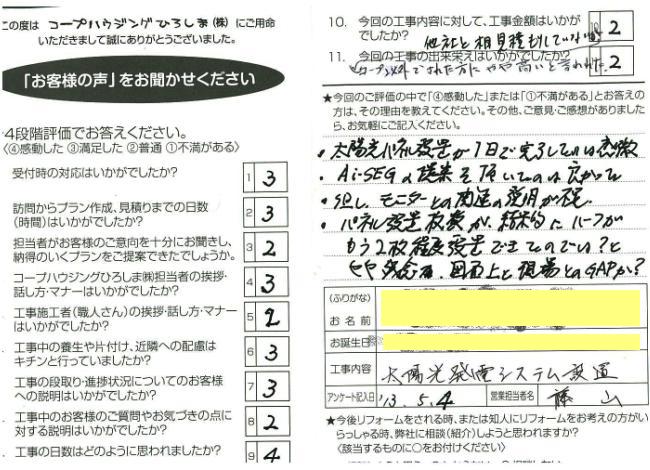 この度は コープハウジングひろしま(株) にご用命
いただきまして誠にありがとうございました。
「お客様の声」をお聞かせください
4段階評価でお答えください。
〈④感動した ③満足した ②普通 ①不満がある〉
受付時の対応はいかがでしたか? 1 3
訪問からプラン作成、見積りまでの日数
(時間)はいかがでしたか? 2 3
担当者がお客様のご意向を十分にお聞きし、
納得のいくプランをご提案できたでしょうか。 3 2
コープハウジングひろしま㈱担当者の挨拶・
話し方・マナーはいかがでしたか? 4 3
工事施工者(職人さん)の挨拶・話し方・マナー
はいかがでしたか? 5 2
工事中の養生や片付け、近隣への配慮は
キチンと行っていましたか? 6 3
工事の段取り・進捗状況についてのお客様
への説明はいかがでしたか? 7 3
工事中のお客様のご質問やお気づきの点に
対する説明はいかがでしたか? 8 2
工事の日数はどのように思われましたか? 9 4
10. 今回の工事内容に対して、工事金額はいかが
でしたか? 2
他社と相見積もりしていないが
11. 今回の工事の出来栄えはいかがでしたか? 2
コープ以外でされた方にやや高いと言われた
★今回のご評価の中で「④感動した」または「①不満がある」とお答えの
方は、その理由を教えてください。その他、ご意見・ご感想がありましたら、
お気軽にご記入ください。
・太陽光パネル設置が1日で完了したのは感激
・Ai-SEGの提案を頂いたのは良かった
・但し、モニターとの関連の説明が不足
・パネル設置枚数が、結果的に
もう2枚程度設置できたのでは?と
図面上と現場とのGAPか?
(ふりがな)
お名前
お誕生日
工事内容 太陽光発電システム設置
アンケート記入日 '13.5.4 営業担当者名 藤山
★今後リフォームをされる時、または知人にリフォームをお考えの方がい
らっしゃる時、弊社に相談(紹介)しようと思われますか?
〈該当するものに○をお付けください〉